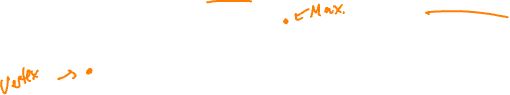 Max.
Vertex